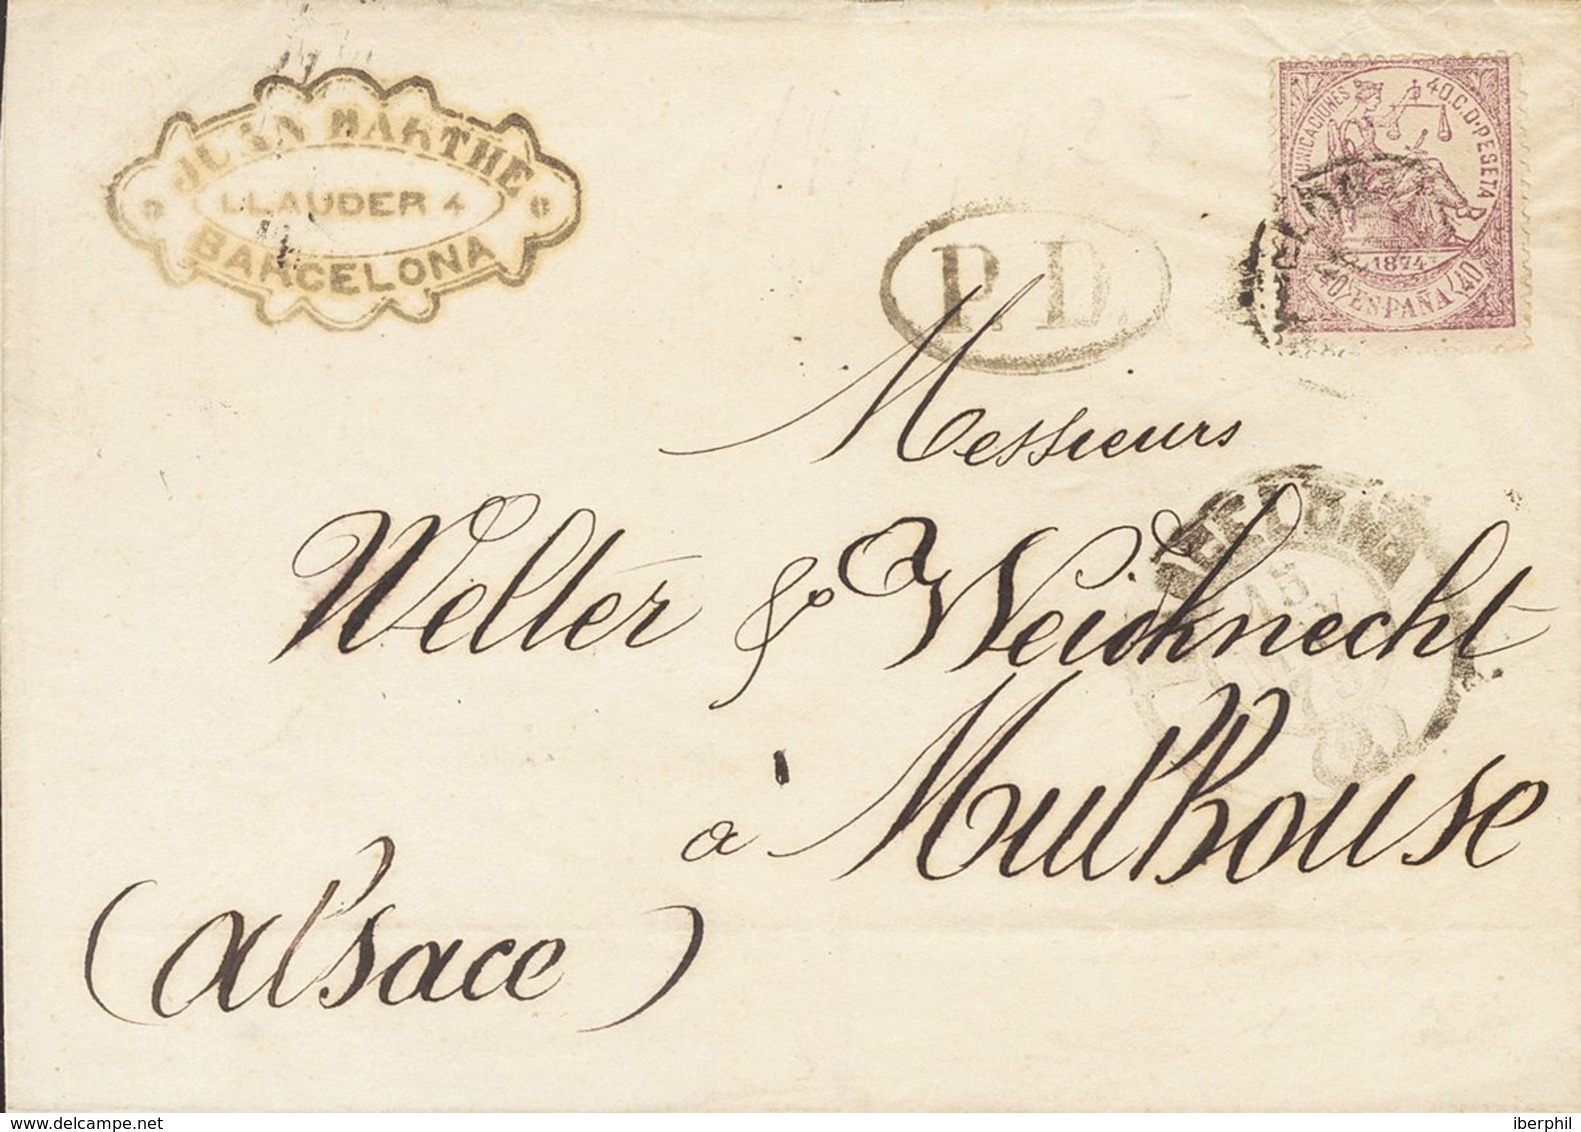 JUAN MARTHE
LLAUDER 4
BARCELONA
P.D.
COMUNICACIONES 40.C.D.PESETA
1874
40 ESPAÑA 40
Messieurs
Welter & Weidknecht
15
à Mulhouse
(Alsace)
www.delcampe.net
iberphil